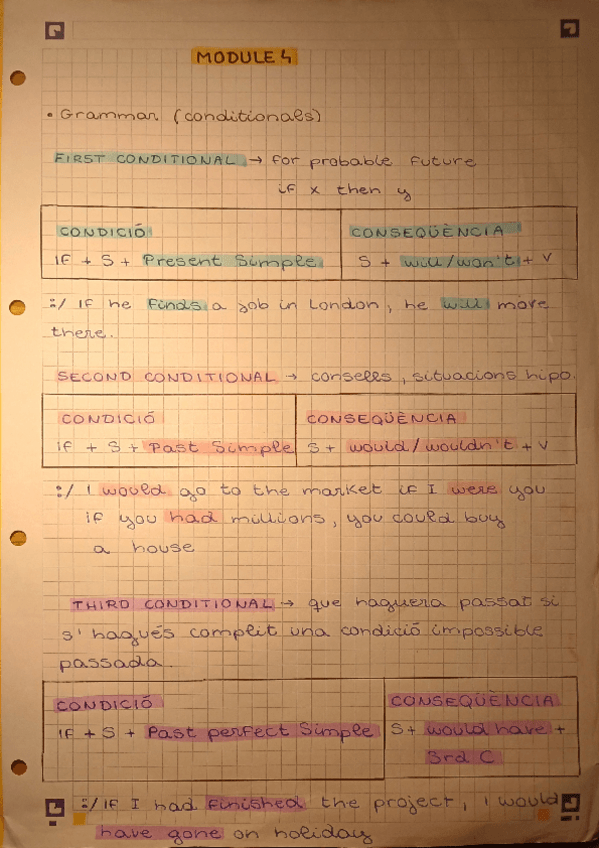 MODULE 4
• Grammar (conditionals)
FIRST CONDITIONAL → for probable future
if x then y
CONDICIÓ
IF + S + Present Simple
CONSEQÜÈNCIA
S + will/won't + V
:/ If he finds a job in London, he will move
there.
SECOND CONDITIONAL → consells, situacions hipo.
CONDICIÓ
if + S + Past Simple
CONSEQÜÈNCIA
S + would/wouldn't + V
:/ I would go to the market if I were you
if you had millions, you could buy
a house
THIRD CONDITIONAL → que haguera passat si
s'hagués complit una condició impossible
passada.
CONDICIÓ
IF + S + Past perfect Simple
CONSEQÜÈNCIA
S + would have +
3rd C
:/ IF I had finished the project, I would
have gone on holiday